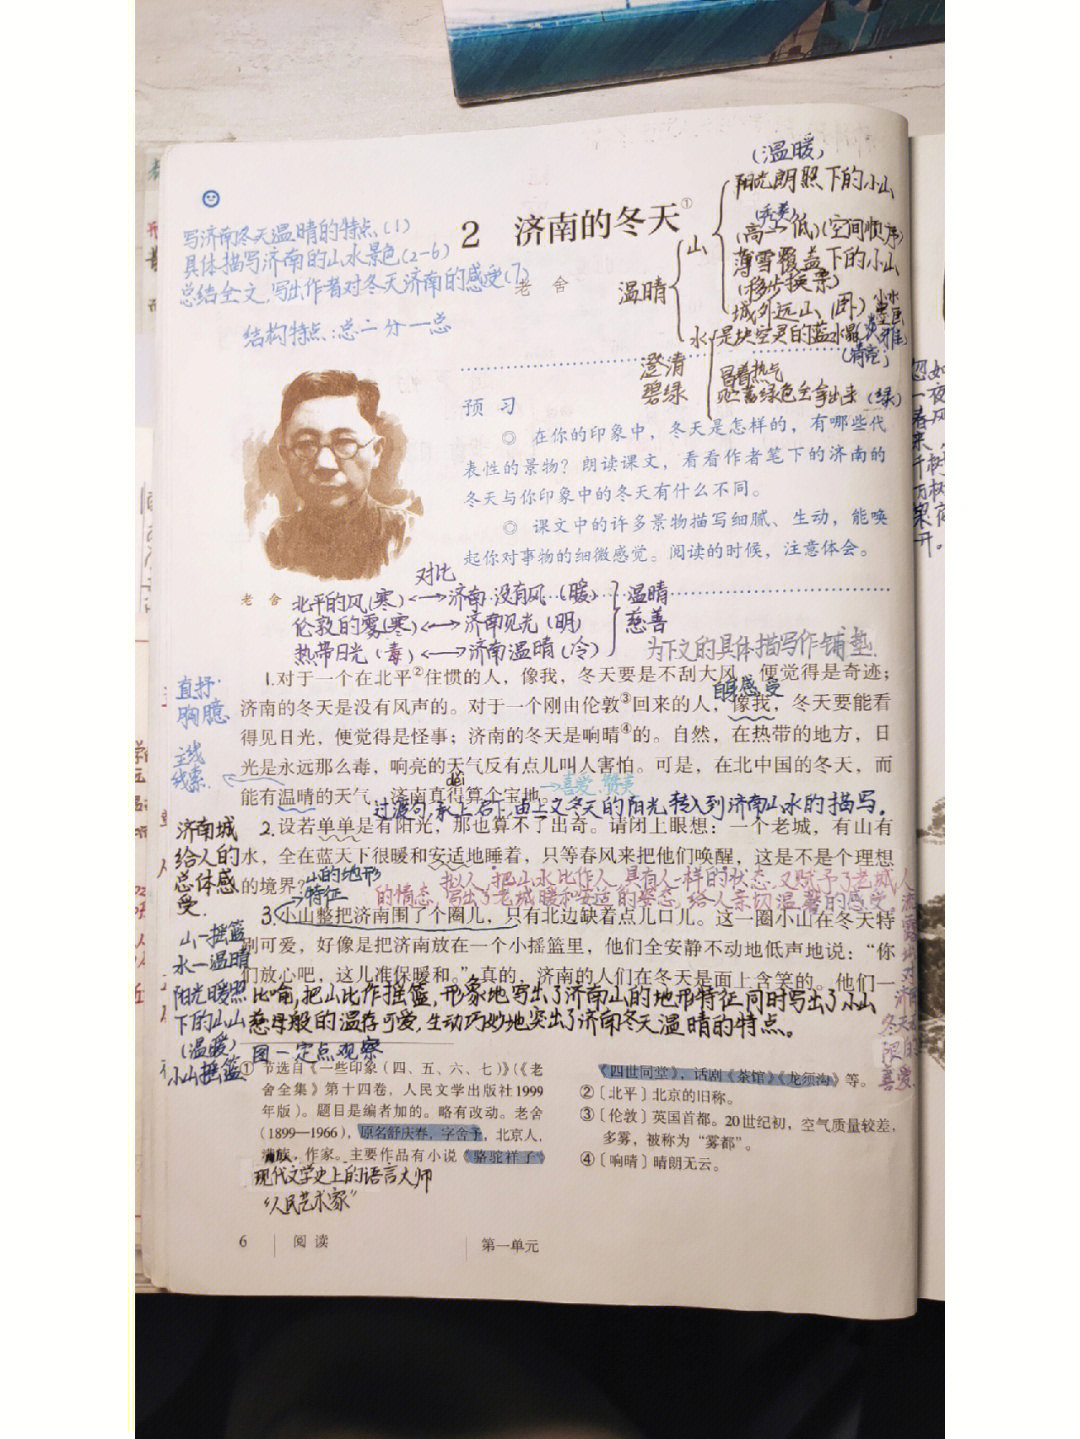 2 济南的冬天①
老 舍
写济南冬天温晴的特点(1)
具体描写济南的山水景色(2-6)
总结全文,写出作者对冬天济南的感受(7)
结构特点:总一分一总
(温暖)
阳光朗照下的小山
(秀美)
高→低(空间顺序)
薄雪覆盖下的小山
(移步换景)
城外远山(卧)
小水墨画
淡雅
温晴
山
水
是块空灵的蓝水晶
(清亮)
澄清
碧绿
冒着热气
把终年贮蓄的绿色全拿出来(绿)
预 习
◎ 在你的印象中，冬天是怎样的，有哪些代
表性的景物？朗读课文，看看作者笔下的济南的
冬天与你印象中的冬天有什么不同。
◎ 课文中的许多景物描写细腻、生动，能唤
起你对事物的细微感觉。阅读的时候，注意体会。
老 舍
对比
北平的风(寒)←→济南没有风(暖)
伦敦的雾(寒)←→济南见光(明)
热带日光(毒)←→济南温晴(冷)
温晴
慈善
为下文的具体描写作铺垫.
1.对于一个在北平②住惯的人，像我，冬天要是不刮大风，便觉得是奇迹；
自身感受
济南的冬天是没有风声的。对于一个刚由伦敦③回来的人，像我，冬天要能看
得见日光，便觉得是怪事；济南的冬天是响晴④的。自然，在热带的地方，日
光是永远那么毒，响亮的天气反有点儿叫人害怕。可是，在北中国的冬天，而
děi
→喜爱、赞美
能有温晴的天气，济南真得算个宝地。
直抒
胸臆
主线
线索
过渡句,承上启下,由上文冬天的阳光转入到济南山水的描写。
2.设若单单是有阳光，那也算不了出奇。请闭上眼想：一个老城，有山有
水，全在蓝天下很暖和安适地睡着，只等春风来把他们唤醒，这是不是个理想
的境界？
山的地形
特征
拟人,把山水比作人,具有人一样的状态,又赋予了老城人
的情态,写出了老城暖和安适的姿态,给人亲切温馨的感受,
济南城
给人的
总体感
受.
3.小山整把济南围了个圈儿，只有北边缺着点儿口儿。这一圈小山在冬天特
别可爱，好像是把济南放在一个小摇篮里，他们全安静不动地低声地说：“你
们放心吧，这儿准保暖和。”真的，济南的人们在冬天是面上含笑的。他们一
比喻,把山比作摇篮,形象地写出了济南山的地形特征,同时写出了小山
慈母般的温存可爱,生动巧妙地突出了济南冬天温晴的特点。
围一定点观察
山一摇篮
水一温晴
阳光暖照
下的小山
(温暖)
小山摇篮
冬天
限的
喜爱
① 节选自《一些印象（四、五、六、七）》（《老
舍全集》第十四卷，人民文学出版社1999
年版）。题目是编者加的。略有改动。老舍
（1899—1966），原名舒庆春，字舍予，北京人，
满族，作家。主要作品有小说《骆驼祥子》
《四世同堂》，话剧《茶馆》《龙须沟》等。
②〔北平〕北京的旧称。
③〔伦敦〕英国首都。20世纪初，空气质量较差，
多雾，被称为“雾都”。
④〔响晴〕晴朗无云。
现代文学史上的语言大师
“人民艺术家”
6 阅 读 第一单元